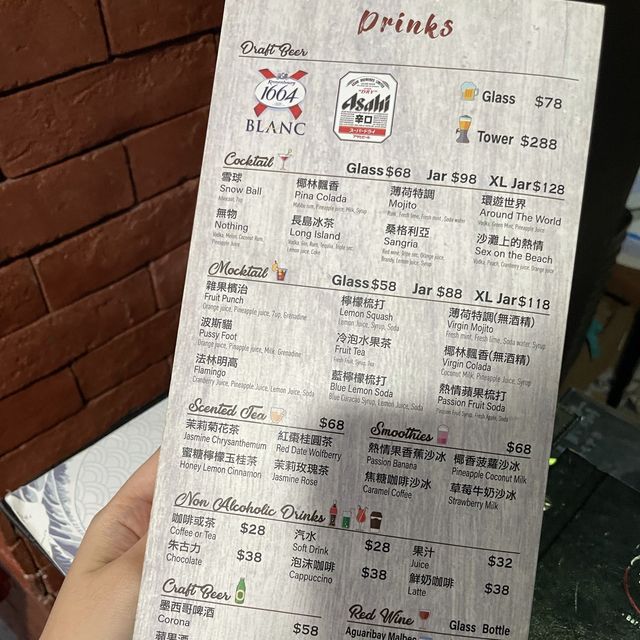 Drinks
Draft Beer
Kronenbourg
1664
BLANC
"DRY"
Asahi
辛口
スーパードライ
Glass $78
Tower $288
Cocktail
Glass $68 Jar $98 XL Jar $128
雪球
Snow Ball
椰林飄香
Pina Colada
Malibu rum, Pineapple juice, Milk, Syrup
薄荷特調
Mojito
Rum, Fresh lime, Fresh mint, Soda water
環遊世界
Around The World
Vodka, Green Mint, Pineapple Juice
無物
Nothing
Vodka, Melon, Coconut Rum,
Pineapple Juice
長島冰茶
Long Island
Vodka, Gin, Rum, Tequila, Triple sec,
Lemon juice, Coke
桑格利亞
Sangria
Red wine, Triple sec, Orange juice,
Brandy, Lemon juice, Syrup
沙灘上的熱情
Sex on the Beach
Vodka, Peach, Cranberry juice, Orange juice
Mocktail
Glass $58 Jar $88 XL Jar $118
雜果檳治
Fruit Punch
Orange juice, Pineapple juice, 7up, Grenadine
檸檬梳打
Lemon Squash
Lemon Juice, Syrup, Soda
薄荷特調(無酒精)
Virgin Mojito
Fresh mint, Fresh lime, Soda water, Syrup
波斯貓
Pussy Foot
Orange juice, Pineapple juice, Milk, Grenadine
冷泡水果茶
Fruit Tea
Fresh Fruit, Syrup, Tea
椰林飄香(無酒精)
Virgin Colada
Coconut Milk, Pineapple Juice, Syrup
法林明高
Flamingo
Cranberry Juice, Pineapple Juice, Lemon Juice, Soda
藍檸檬梳打
Blue Lemon Soda
Blue Curacao Syrup, Lemon Juice, Soda
熱情蘋果梳打
Passion Fruit Soda
Passion Fruit Syrup, Fresh Apple, Soda
Scented Tea $68
茉莉菊花茶
Jasmine Chrysanthemum
紅棗桂圓茶
Red Date Wolfberry
蜜糖檸檬玉桂茶
Honey Lemon Cinnamon
茉莉玫瑰茶
Jasmine Rose
Smoothies $68
熱情果香蕉沙冰
Passion Banana
椰香菠蘿沙冰
Pineapple Coconut Milk
焦糖咖啡沙冰
Caramel Coffee
草莓牛奶沙冰
Strawberry Milk
Non Alcoholic Drinks
咖啡或茶
Coffee or Tea
$28
汽水
Soft Drink
$28
果汁
Juice
$32
朱古力
Chocolate
$38
泡沫咖啡
Cappuccino
$38
鮮奶咖啡
Latte
$38
Craft Beer
墨西哥啤酒
Corona
$58
蘋果酒
Red Wine Glass Bottle
Aguaribay Malbec